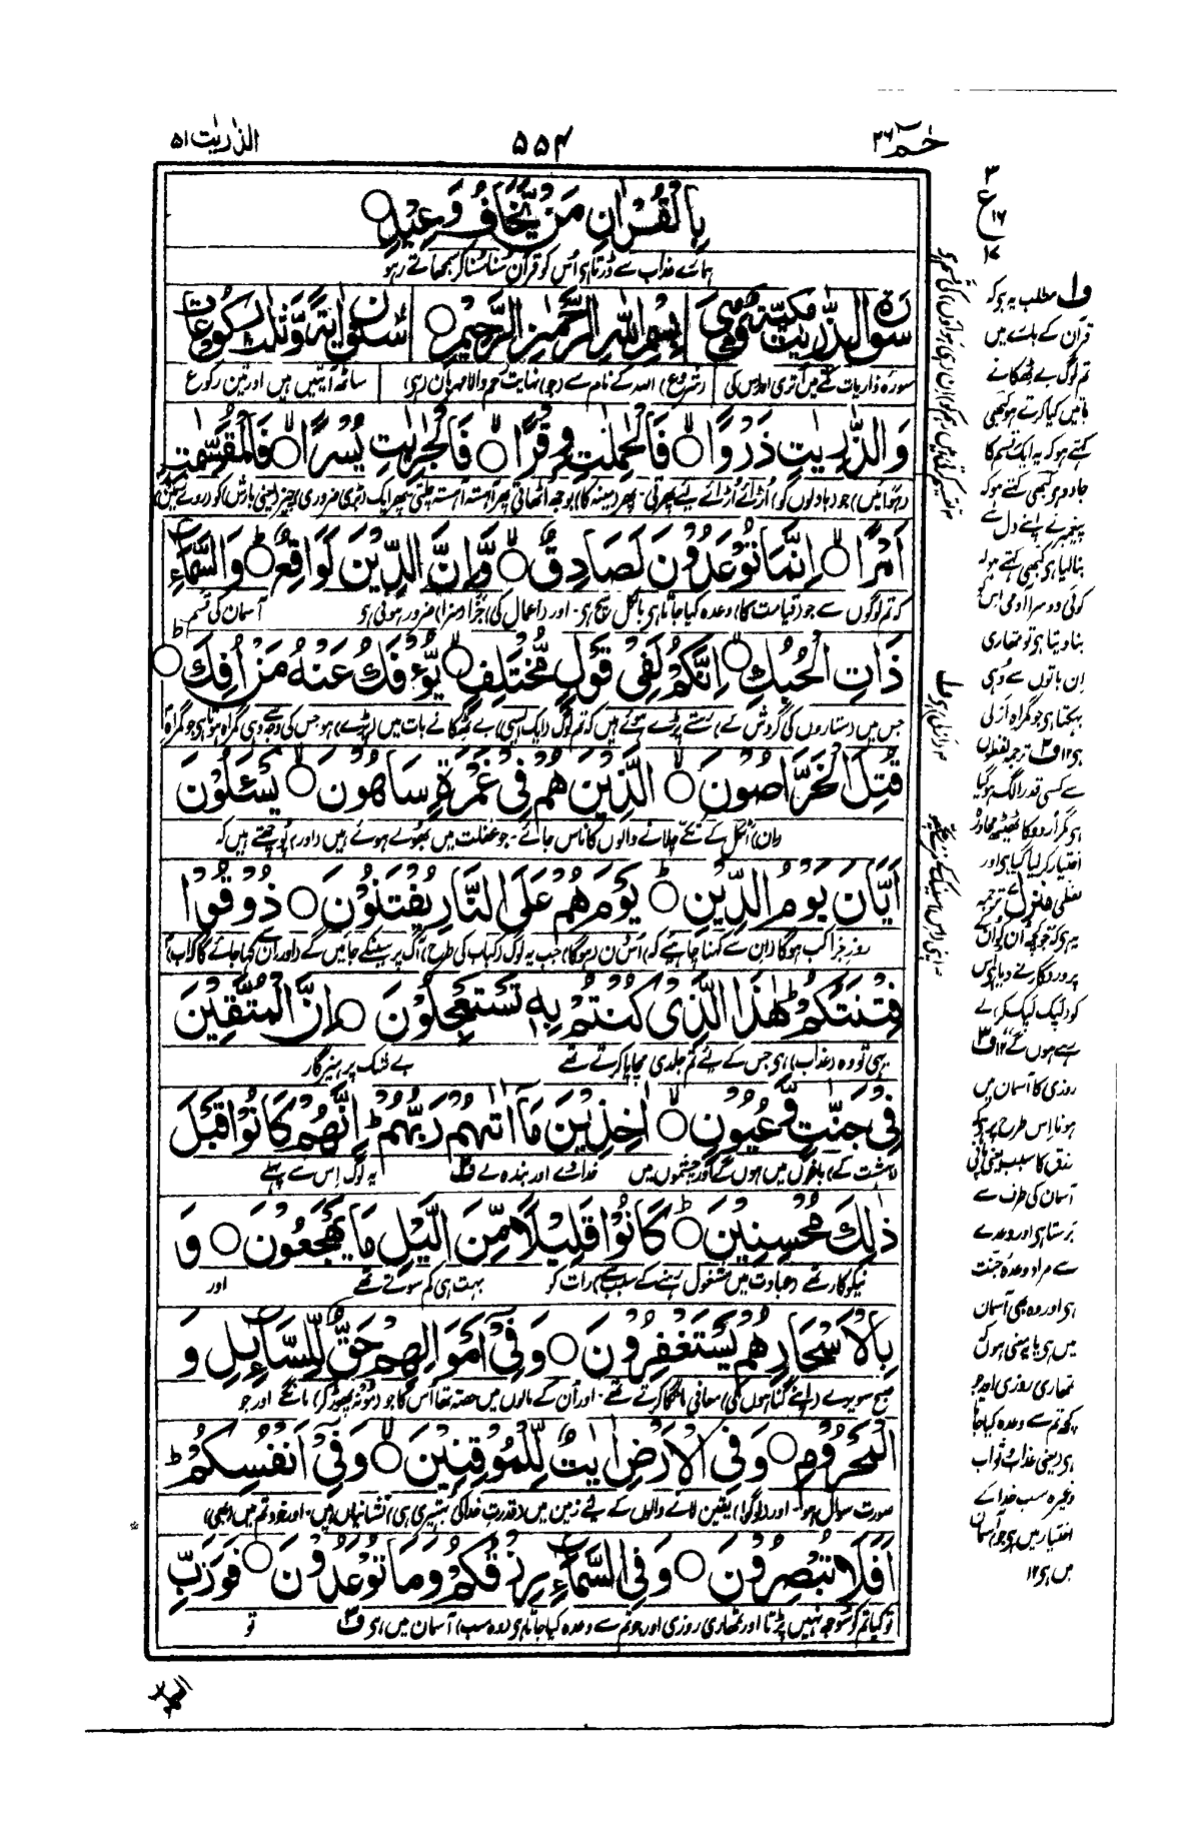 حٰمٓ ۲۶
۵۵۴
الذّٰریٰت ۵۱
بِالْقُرْاٰنِ مَنْ یَّخَافُ وَعِیْدِ ○
ہمارے عذاب سے ڈرتا ہی اُس کو قرآن سُنا سُنا کر سمجھاتے رہو
سُوْرَةُ الذّٰرِیٰتِ مَكِّیَّةٌ وَّهِیَ
بِسْمِ اللّٰهِ الرَّحْمٰنِ الرَّحِیْمِ ○
سِتُّوْنَ اٰیَةً وَّثَلٰثُ رُكُوْعَاتٍ
سورۂ ذاریات مکّے میں اُتری اور اس کی
(شروع) اللہ کے نام سے (جو) نہایت رحم والا مہربان (ہی)
ساٹھ آیتیں ہیں اور تین رکوع
وَالذّٰرِیٰتِ ذَرْوًا ○ فَالْحٰمِلٰتِ وِقْرًا ○ فَالْجٰرِیٰتِ یُسْرًا ○ فَالْمُقَسِّمٰتِ
اَمْرًا ○ اِنَّمَا تُوْعَدُوْنَ لَصَادِقٌ ○ وَّاِنَّ الدِّیْنَ لَوَاقِعٌ ○ وَالسَّمَآءِ
کہ تم لوگوں سے جو (قیامت کا) وعدہ کیا جاتا ہی بالکل سچ ہی۔ اور (اعمال کی) جزا (و سزا) ضرور ہونی ہی آسمان کی قسم
ذَاتِ الْحُبُكِ ○ اِنَّكُمْ لَفِیْ قَوْلٍ مُّخْتَلِفٍ ○ یُّؤْفَكُ عَنْهُ مَنْ اُفِكَ ○
جس میں (ستاروں کی گردش کے) رستے پڑے ہوئے ہیں کہ تم لوگ (ایک ایسی) بے ٹھکانے بات میں (پڑے) ہو جس کی وجہ سے وہی گمراہ ہوتا ہی جو گمراہ
قُتِلَ الْخَرّٰصُوْنَ ○ الَّذِیْنَ هُمْ فِیْ غَمْرَةٍ سَاهُوْنَ ○ یَسْـَٔلُوْنَ
اٹکل کے تُکّے چلانے والوں کا ناس جائے۔ جو غفلت میں بھولے ہوئے ہیں (اور) پوچھتے ہیں کہ
اَیَّانَ یَوْمُ الدِّیْنِ ○ یَوْمَ هُمْ عَلَی النَّارِ یُفْتَنُوْنَ ○ ذُوْقُوْا
روزِ جزا کب ہوگا (ان سے کہنا چاہیے کہ) اُس دن (ہوگا) جب یہ لوگ (کباب کی طرح) آگ پر سینکے جائیں گے (اور ان سے کہا جائے گا کہ اب)
فِتْنَتَكُمْ ؕ هٰذَا الَّذِیْ كُنْتُمْ بِهٖ تَسْتَعْجِلُوْنَ ○ اِنَّ الْمُتَّقِیْنَ
یہی تو وہ (عذاب) ہی جس کے لیے تم جلدی مچایا کرتے تھے بے شک پرہیزگار
فِیْ جَنّٰتٍ وَّعُیُوْنٍ ○ اٰخِذِیْنَ مَاۤ اٰتٰىهُمْ رَبُّهُمْ ؕ اِنَّهُمْ كَانُوْا قَبْلَ
(بہشت کے) باغوں میں ہوں گے اور چشموں میں خدا دے اور بندہ لے ف یہ لوگ اِس سے پہلے
ذٰلِكَ مُحْسِنِیْنَ ○ كَانُوْا قَلِیْلًا مِّنَ الَّیْلِ مَا یَهْجَعُوْنَ ○ وَ
نیکوکار تھے (عبادت میں مشغول رہنے کے سبب سے) رات کو بہت ہی کم سوتے تھے اور
بِالْاَسْحَارِ هُمْ یَسْتَغْفِرُوْنَ ○ وَفِیْۤ اَمْوَالِهِمْ حَقٌّ لِّلسَّآئِلِ وَ
صبح سویرے (اپنے گناہوں کی) معافی مانگا کرتے تھے۔ اور اُن کے مالوں میں حصّہ تھا اُس کا جو (مُنہ پھوڑ کر) مانگے اور جو
الْمَحْرُوْمِ ○ وَفِی الْاَرْضِ اٰیٰتٌ لِّلْمُوْقِنِیْنَ ○ وَفِیْۤ اَنْفُسِكُمْ ؕ
صورت سوال ہو۔ اور (لوگو!) یقین لانے والوں کے لیے زمین میں (قدرتِ خدا کی بہتیری ہی) نشانیاں ہیں۔ اور خود تم میں (بھی)
اَفَلَا تُبْصِرُوْنَ ○ وَفِی السَّمَآءِ رِزْقُكُمْ وَمَا تُوْعَدُوْنَ ○ فَوَرَبِّ
تو کیا تم کو سوجھ نہیں پڑتا اور تمھاری روزی اور جو تم سے وعدہ کیا جاتا ہی (وہ سب) آسمان میں ہی ف تو
۳
ع
۱۶
۱۷
ف۱ مطلب یہ ہی کہ
قرآن کے بارے میں
تم لوگ بے ٹھکانے
باتیں کیا کرتے ہو کبھی
کہتے ہو کہ یہ ایک قسم کا
جادو ہی کبھی کہتے ہو کہ
پیغمبر نے اپنے دل سے
بنا لیا ہی کبھی کہتے ہو کہ
کوئی دوسرا آدمی اس کو
بنا دیتا ہی تو تمھاری
اِن باتوں سے وُہی
بہکتا ہی جو گمراہِ ازلی
ہی ۱۲ ف۲ ترجمہ لفظوں
سے کسی قدر الگ ہو گیا
ہی مگر اُردو کا ٹھیٹھ محاورہ
اختیار کر لیا گیا ہی اور
لفظی ترجمہ
یہ ہی کہ جو کچھ اُن کو اُن کے
پروردگار نے دیا ہی اُس
کو لپک لپک کر لے
رہے ہوں گے ۱۲ ف۳
روزی کا آسمان میں
ہونا اِس طرح پر ہی کہ
رزق کا سبب یعنی پانی
آسمان کی طرف سے
برستا ہی اور وعدے
سے مراد وعدۂ جنّت
ہی اور وہ بھی آسمان
میں ہی یا یہ معنی ہوں کہ
تمھاری روزی اور جو
کچھ تم سے وعدہ کیا جاتا
ہی یعنی عذاب و ثواب
وغیرہ سب خدا کے
اختیار میں ہی جو آسمان
میں ہی ۱۲